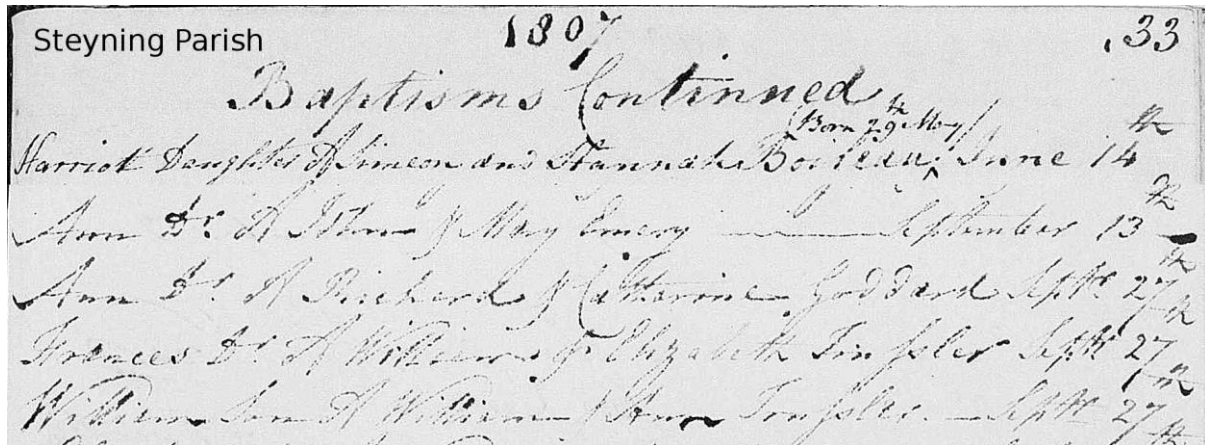 Steyning Parish
1807
33
Baptisms Continued
Born 29th May
Harriot Daughter of Simeon and Hannah Boileau June 14th
Ann Dr. of John & Mary Emery September 13th
Ann Dr. of Richard & Catherine Goddard Septr. 27th
Frances Dr. of William & Elizabeth Septr. 27th
William Son of William & Ann Septr. 27th